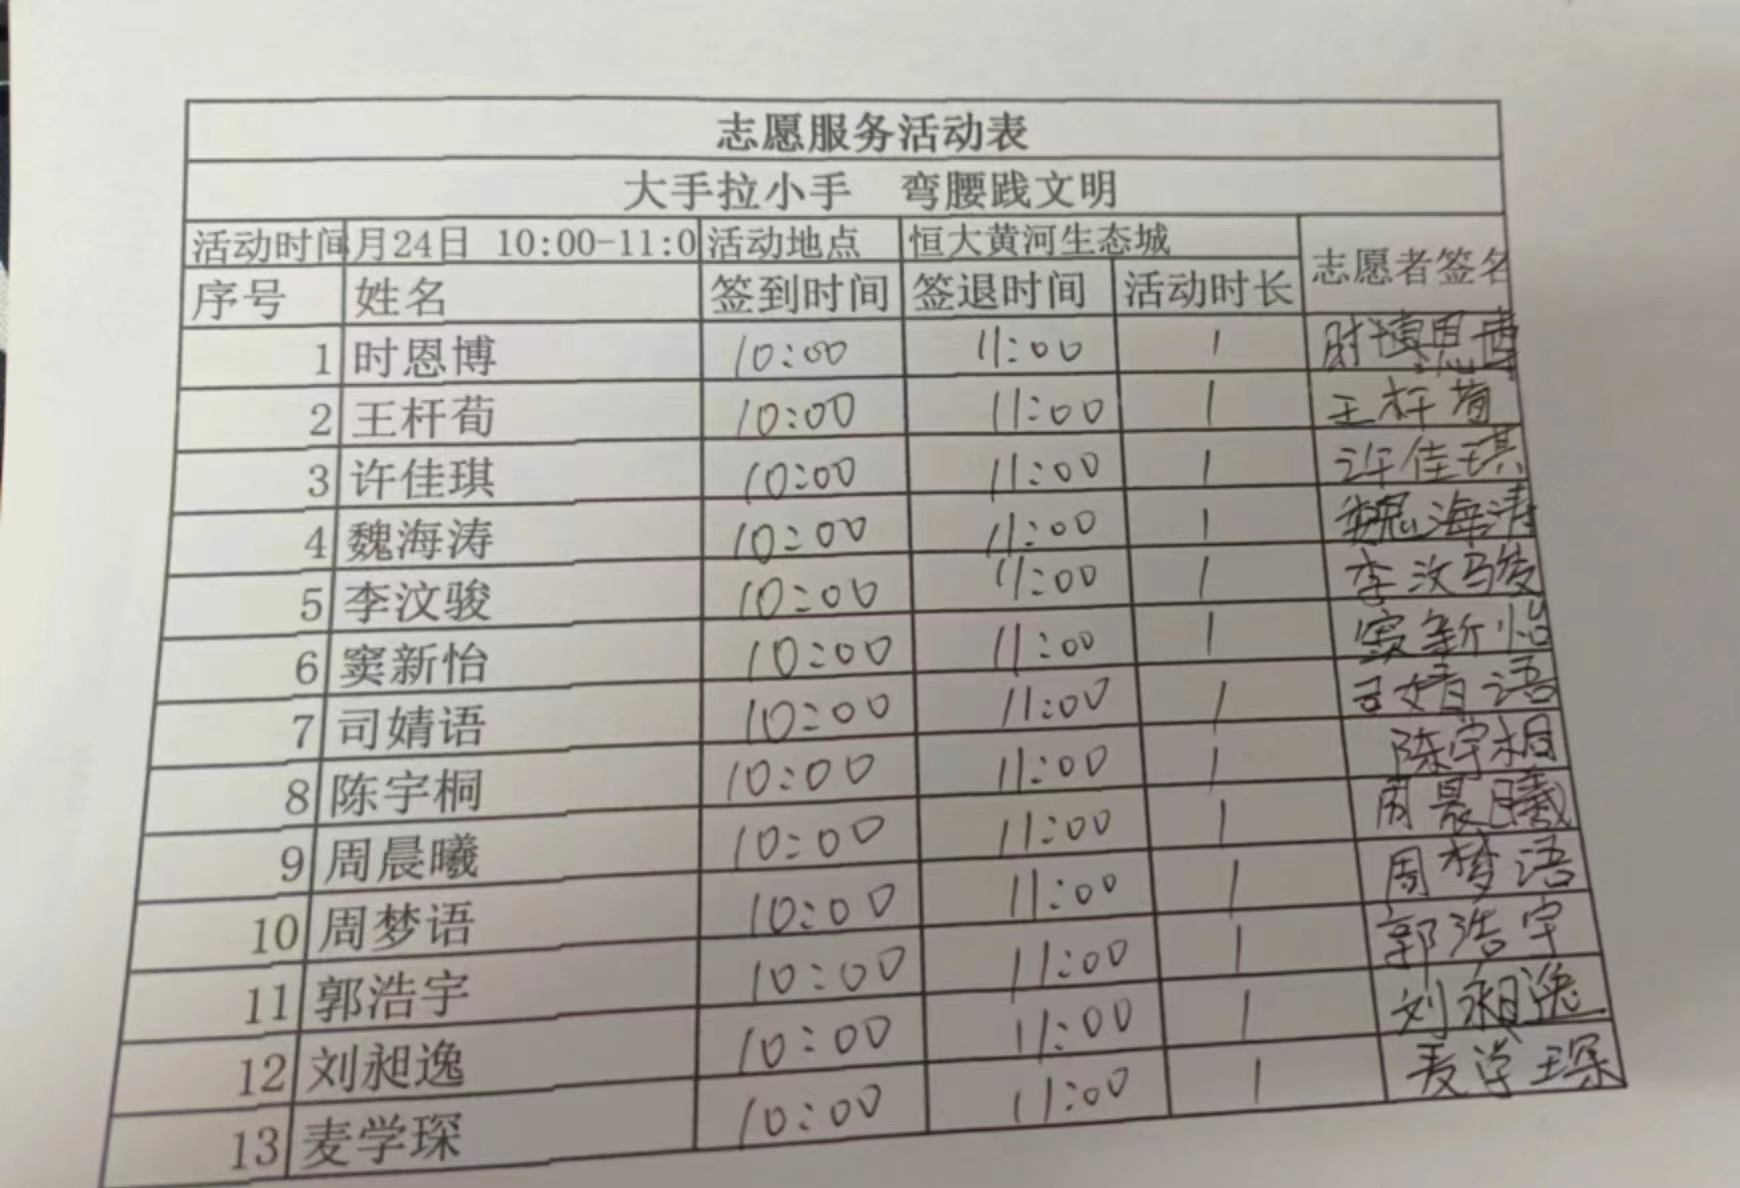 志愿服务活动表
大手拉小手 弯腰践文明
活动时间 月24日 10:00-11:0 活动地点 恒大黄河生态城 志愿者签名
序号 姓名 签到时间 签退时间 活动时长
1 时恩博 10:00 11:00 1 时博恩博
2 王杆荀 10:00 11:00 1 王杆荀
3 许佳琪 10:00 11:00 1 许佳琪
4 魏海涛 10:00 11:00 1 魏海涛
5 李汶骏 10:00 11:00 1 李汶骏
6 窦新怡 10:00 11:00 1 窦新怡
7 司婧语 10:00 11:00 1 司婧语
8 陈宇桐 10:00 11:00 1 陈宇桐
9 周晨曦 10:00 11:00 1 周晨曦
10 周梦语 10:00 11:00 1 周梦语
11 郭浩宇 10:00 11:00 1 郭浩宇
12 刘昶逸 10:00 11:00 1 刘昶逸
13 麦学琛 10:00 11:00 1 麦学琛